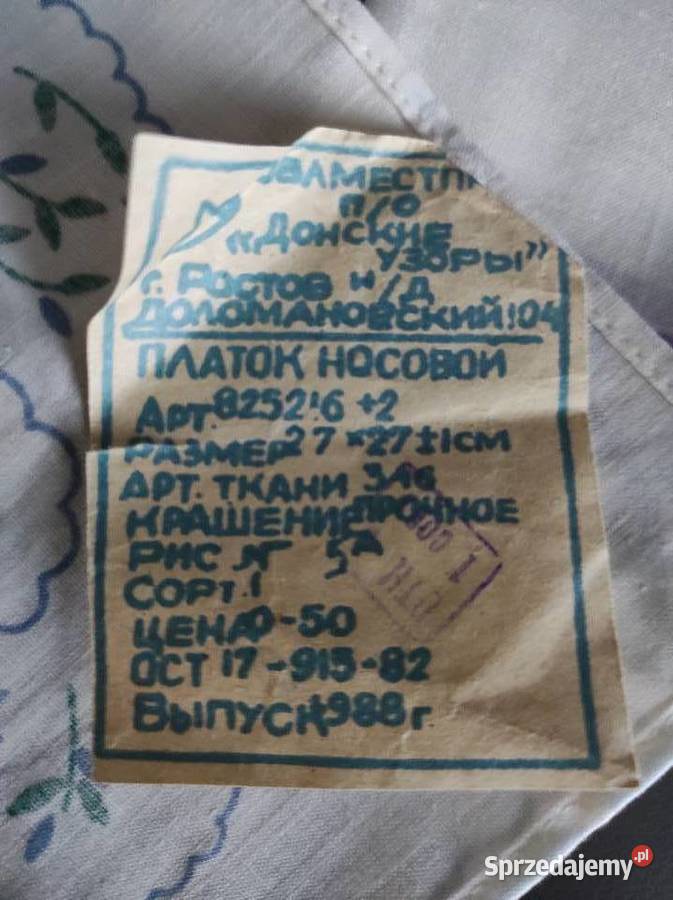 п/о
«Донские
узоры"
г. Ростов н/д
Доломановский 104
ПЛАТОК НОСОВОЙ
Арт. 825216 +2
РАЗМЕР 27 × 27 ± 1 см
АРТ. ТКАНИ 346
КРАШЕНИЕ ПРОЧНОЕ
РИС № 5А
СОРТ. 1
ЦЕНА 0-50
ОСТ 17-915-82
ВЫПУСК 1988 г.
1
Sprzedajemy.pl